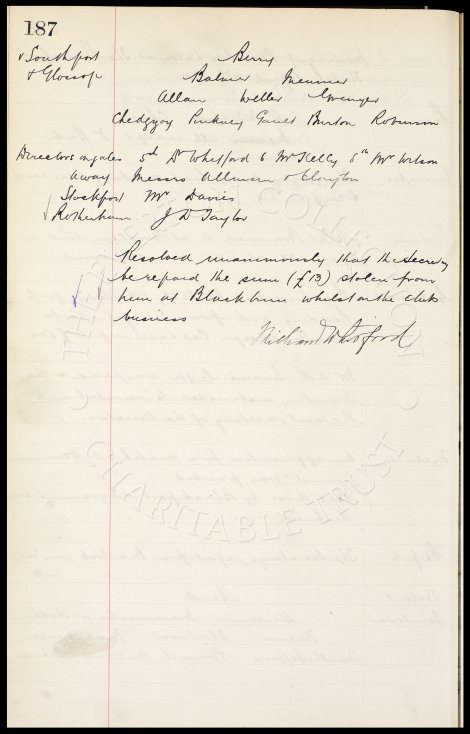 187
& Southport
& Glossop
Berry
Balmer Meunier
Allan Weller Grenyer
Chedgzoy Pinkney Gault Burton Robinson
Directors on gates 5d Dr Whitford 6 Mr Kelly 8th Mr Wilson
away Messrs Allman & Clayton
Stockport Mr Davies
Rotherham J D Taylor
Resolved unanimously that the Secretary
be repaid the sum (£13) stolen from
him at Blackburn whilst on the clubs
business
William Whitford
THE EVERTON COLLECTION
CHARITABLE TRUST